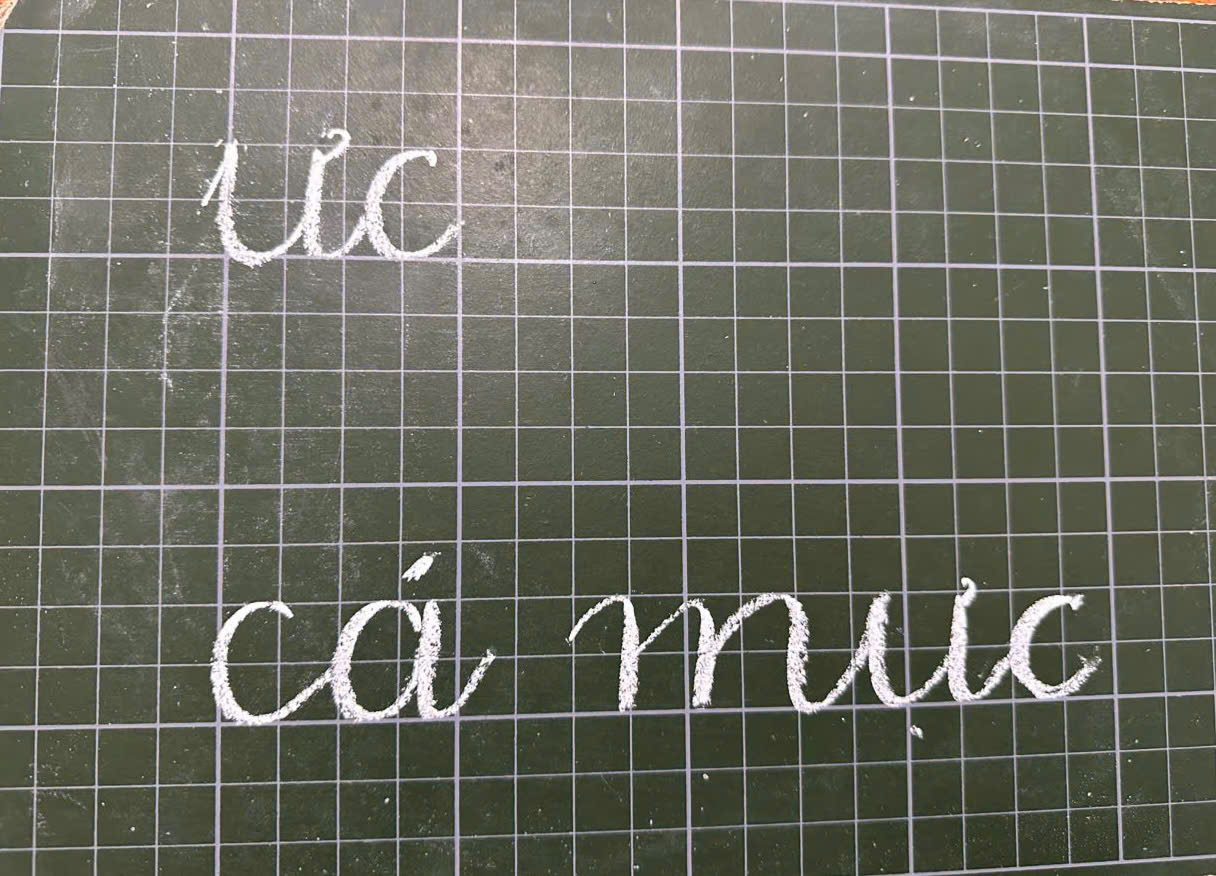 ưc
cá mực